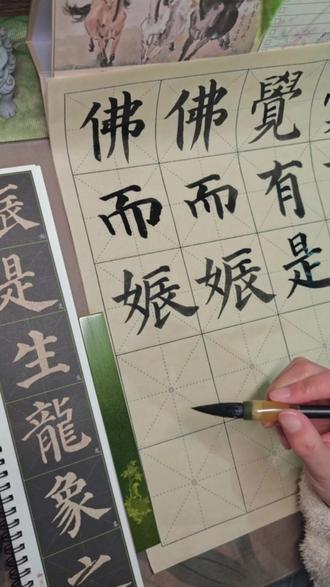 佛佛覺
而而有
娠娠是
是生龍象